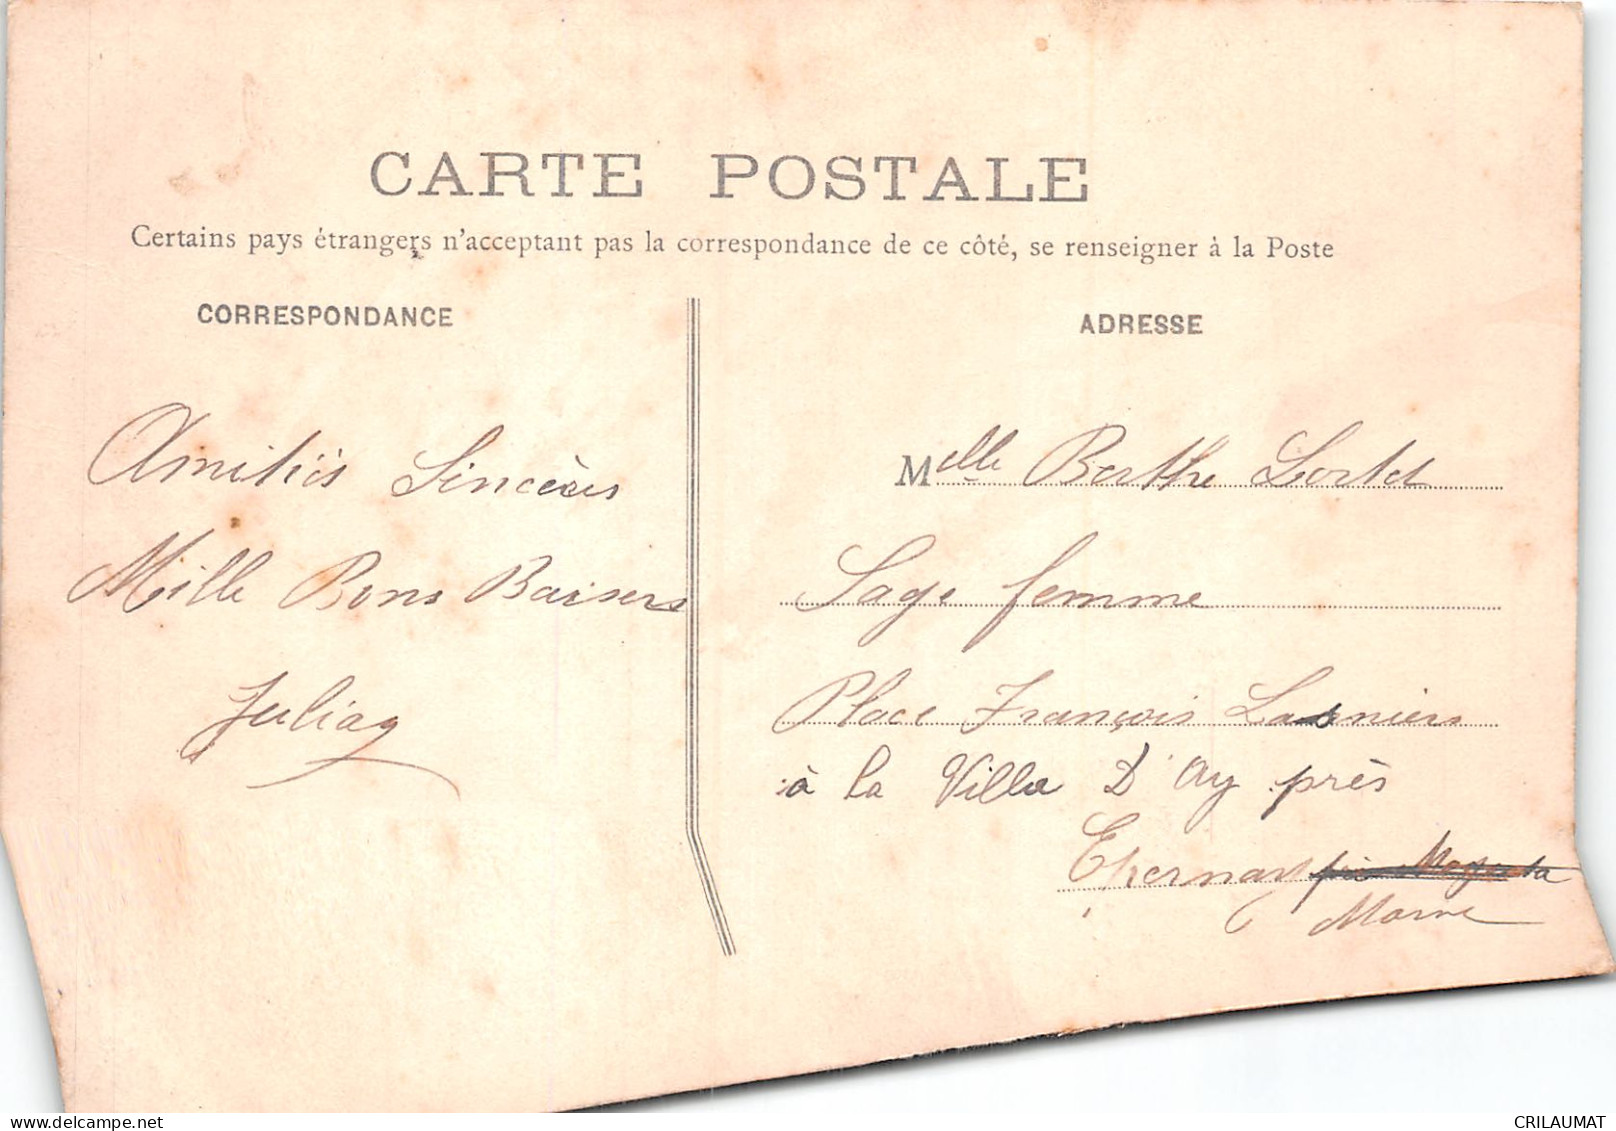 CARTE POSTALE
Certains pays étrangers n'acceptant pas la correspondance de ce côté, se renseigner à la Poste
CORRESPONDANCE
Amitiés Sincères
Mille Bons Baisers
ADRESSE
Melle Berthe Lortet
Sage femme
Place François
à la Villa D'Ay près
Epernay
Marne
CRILAUMAT